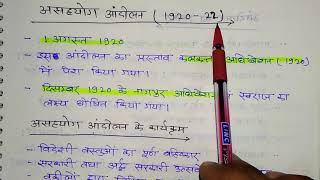 असहयोग आंदोलन (1920-22)
- 1 अगस्त 1920
- इस आंदोलन का प्रस्ताव कलकत्ता अधिवेशन (1920)
में पेश किया गया।
- दिसम्बर 1920 के नागपुर अधिवेशन में स्वराज का
लक्ष्य घोषित किया गया।
असहयोग आंदोलन के कार्यक्रम
- विदेशी वस्तुओं का पूर्ण बहिष्कार
- सरकारी तथा अर्द्ध सरकारी
LINC